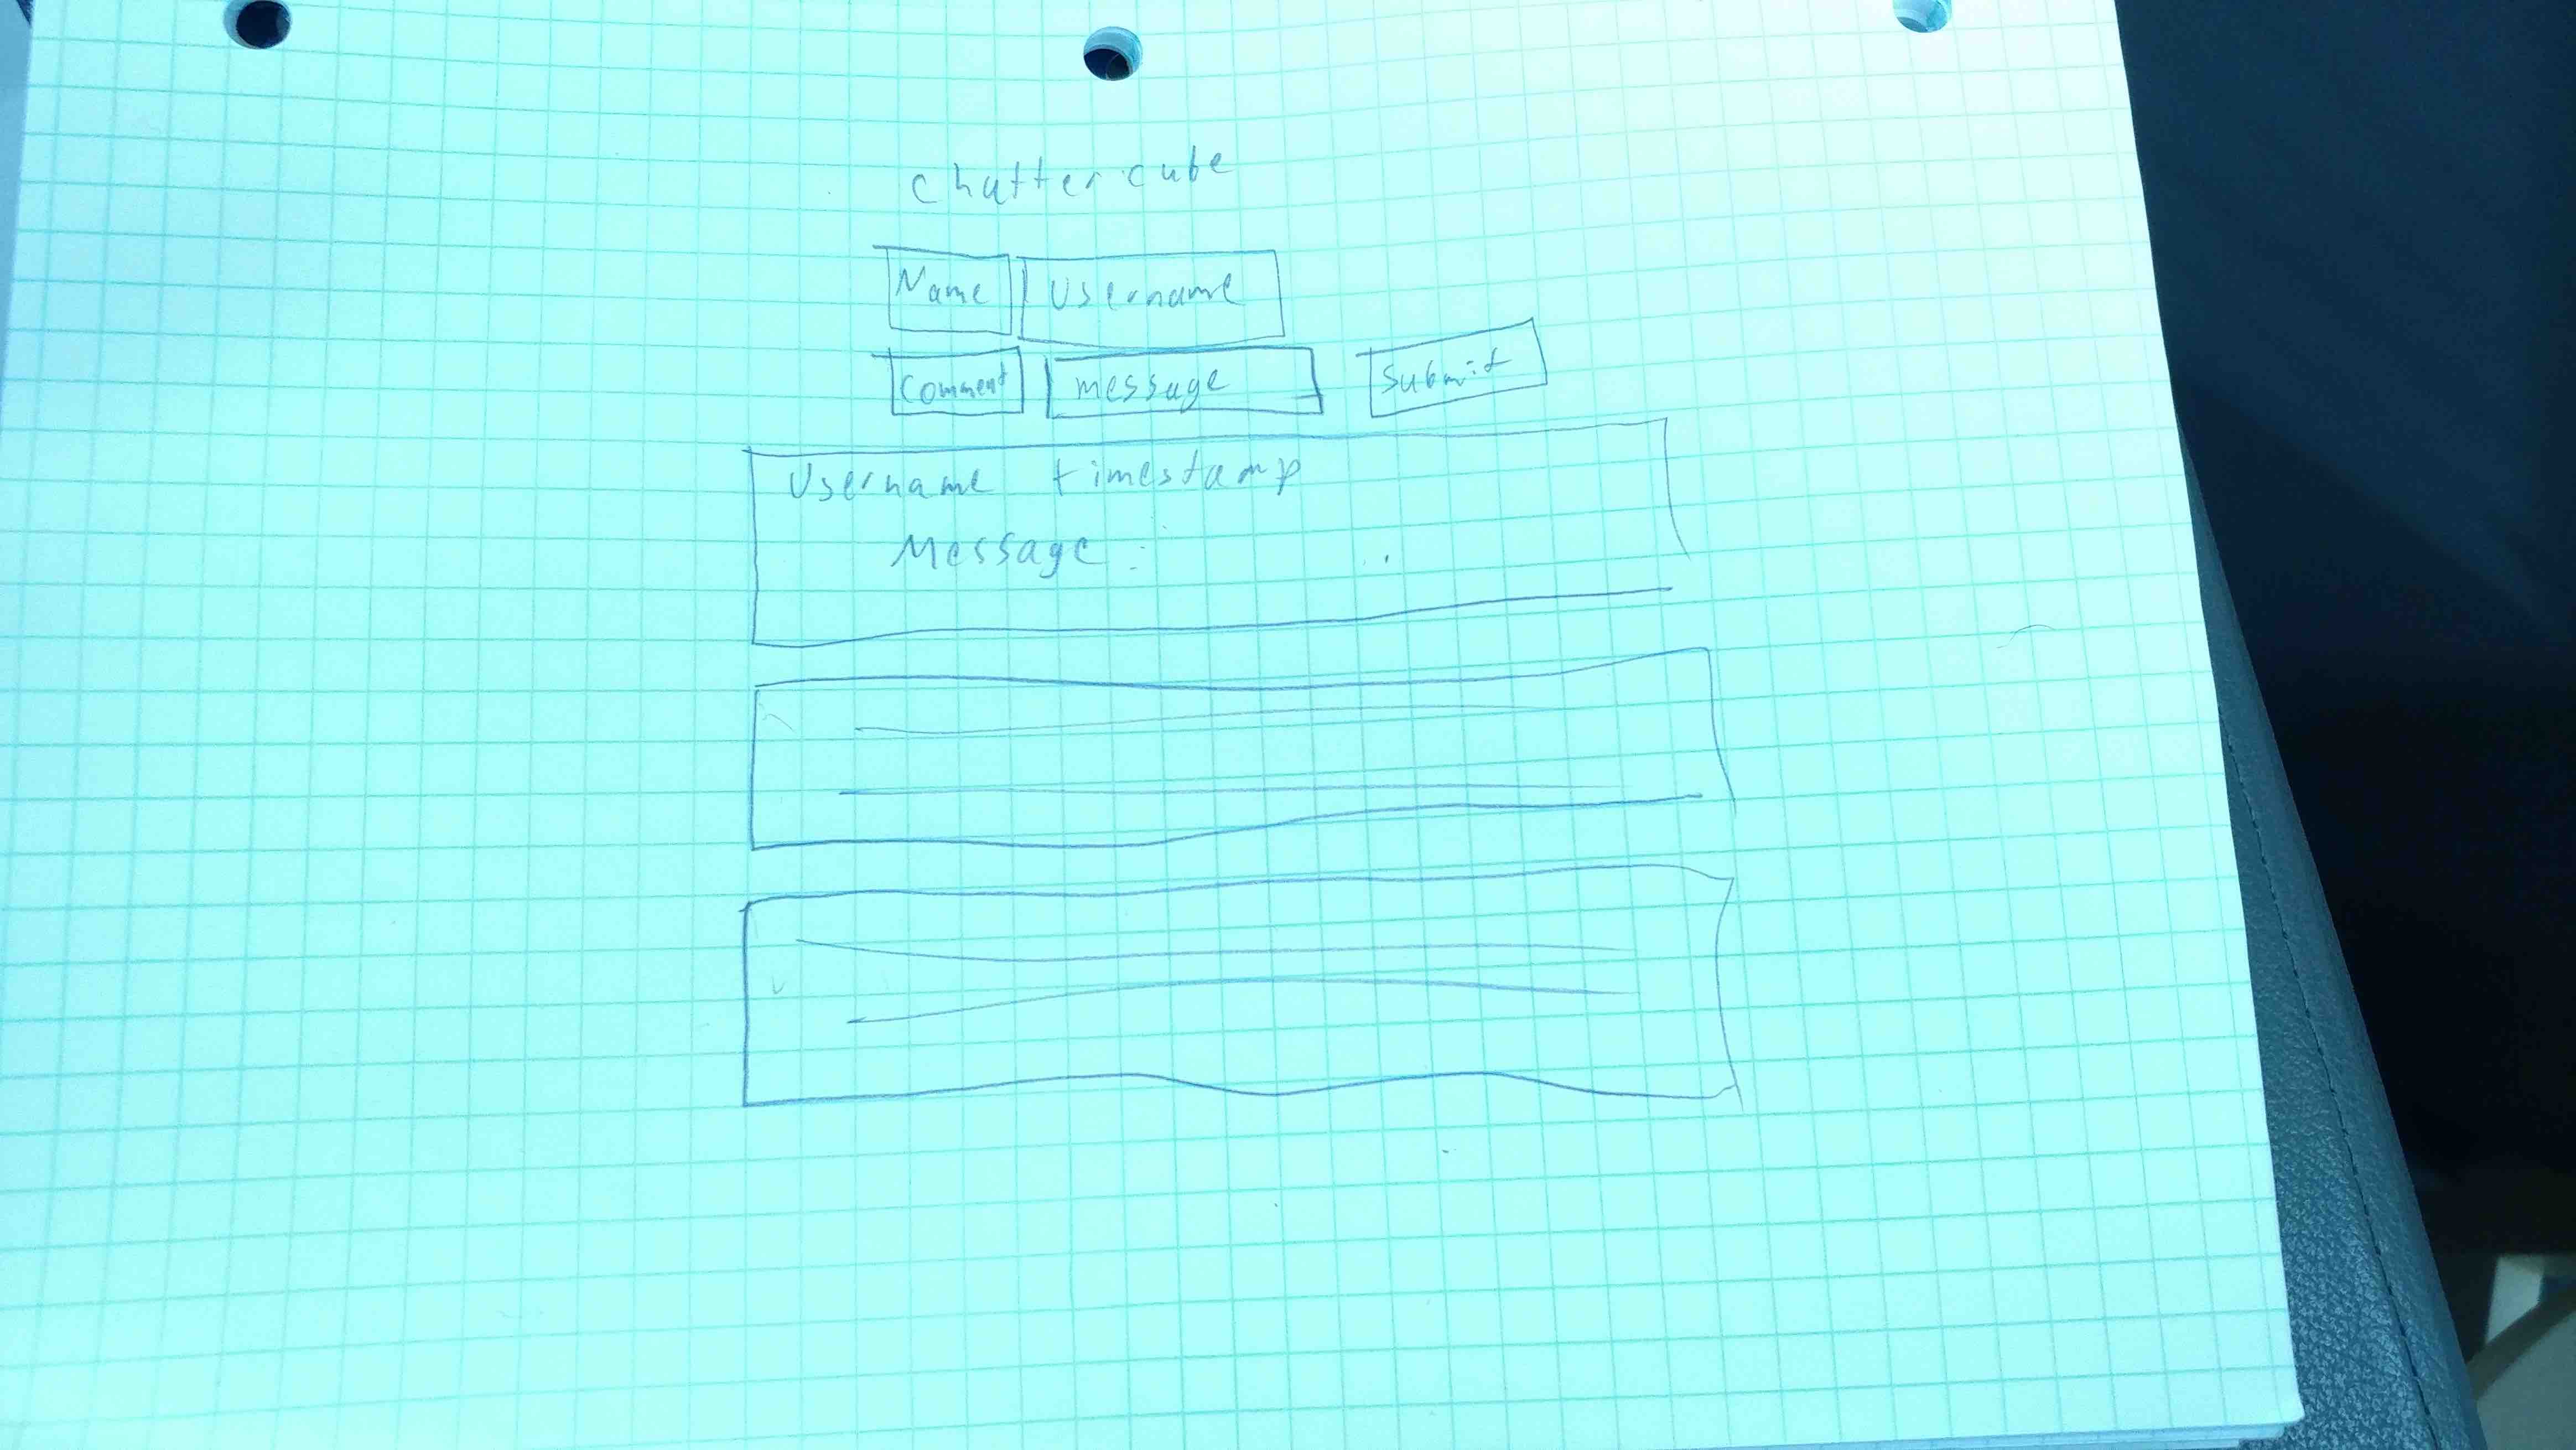 chatter cube
Name Username
Comment message Submit
Username timestamp
Message :